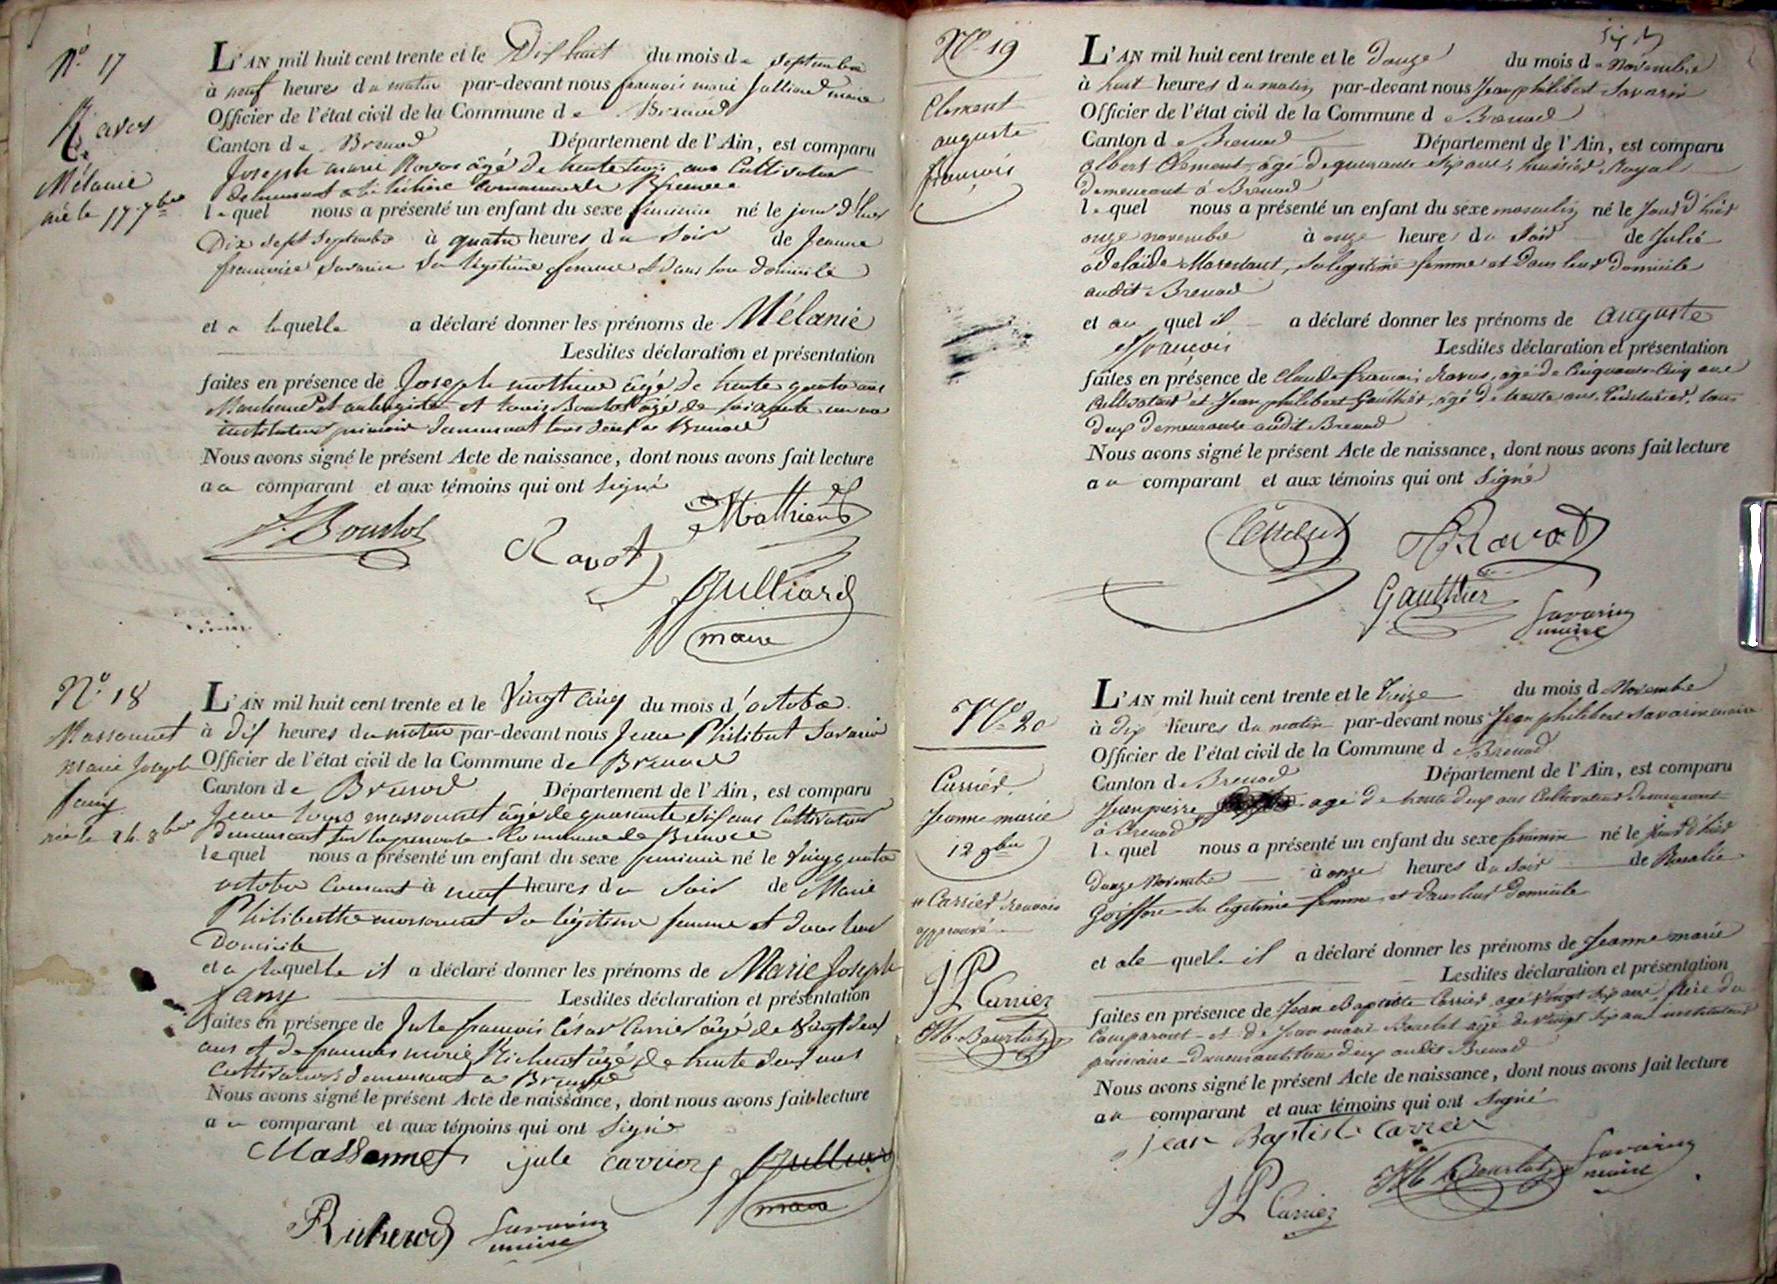 N.º 17
Ravos
Mélanie
née le 17 7bre
L'AN mil huit cent trente et le Dix huit du mois de septembre
à neuf heures du matin par-devant nous françois marie Julliard maire
Officier de l'état civil de la Commune de Brenod
Canton de Brenod Département de l'Ain, est comparu
Joseph marie Ravos âgé de trente trois ans Cultivateur
demeurant à commune de Brenod
lequel nous a présenté un enfant du sexe féminin né le jour d'hier
Dix sept septembre à quatre heures du soir de Jeanne
françoise Savarin sa légitime femme et dans son domicile
et a laquelle a déclaré donner les prénoms de Mélanie
Lesdites déclaration et présentation
faites en présence de Joseph mathieu âgé de trente quatre ans
Marchand et aubergiste et Louis Bourlot âgé de soixante un ans
instituteur primaire demeurant tous deux à Brenod
Nous avons signé le présent Acte de naissance, dont nous avons fait lecture
au comparant et aux témoins qui ont signé
L. Bourlot
Ravot
Mathieu
Julliard
maire
N.º 18
Massonnet
Marie Joseph
fany
née le 24 8bre
L'AN mil huit cent trente et le Vingt cinq du mois d'octobre
à dix heures du matin par-devant nous Jean Philibert Savarin
Officier de l'état civil de la Commune de Brenod
Canton de Brenod Département de l'Ain, est comparu
Jean Louis massonnet âgé de quarante six ans Cultivateur
demeurant sur la Commune de Brenod
lequel nous a présenté un enfant du sexe féminin né le Vingt quatre
octobre Courant à neuf heures du soir de Marie
Philiberthe massonnet sa légitime femme et dans leur
Domicile
et a laquelle il a déclaré donner les prénoms de Marie Joseph
fany Lesdites déclaration et présentation
faites en présence de Jule françois César Carrier âgé de vingt deux
ans et de françois marie Richerod âgé de trente deux ans
Cultivateurs demeurant à Brenod
Nous avons signé le présent Acte de naissance, dont nous avons fait lecture
au comparant et aux témoins qui ont signé
Massonnet jule Carrier Julliard
maire
Richerod Savarin
maire
N.º 19
Clement
auguste
françois
L'AN mil huit cent trente et le douze du mois de Novembre
à huit heures du matin par-devant nous Jean philibert Savarin
Officier de l'état civil de la Commune de Brenod
Canton de Brenod Département de l'Ain, est comparu
albert Clement, âgé de quarante six ans, huissier Royal
demeurant à Brenod
lequel nous a présenté un enfant du sexe masculin né le jour d'hier
onze novembre à onze heures du soir de Julie
adelaide Marechant, sa legitime femme et dans leur domicile
audit Brenod
et au quel il a déclaré donner les prénoms de auguste
françois Lesdites déclaration et présentation
faites en présence de Claude françois Ravos, âgé de Cinquante Cinq ans
Cultivateur et Jean philibert Gauthier, âgé de trente ans, Teinturier, tous
deux demeurants audit Brenod
Nous avons signé le présent Acte de naissance, dont nous avons fait lecture
au comparant et aux témoins qui ont signé
Clément Ravot
Gauthier Savarin
maire
N.º 20
Carrier
Jeanne marie
12 9bre
# Carrier renvoi
approuvé
J P Carrier
JM Bourlot
L'AN mil huit cent trente et le treize du mois de Novembre
à dix heures du matin par-devant nous Jean philibert Savarin maire
Officier de l'état civil de la Commune de Brenod
Canton de Brenod Département de l'Ain, est comparu
Jean pierre agé de trente deux ans Cultivateur demeurant
à Brenod
lequel nous a présenté un enfant du sexe feminin né le jour d'hier
douze Novembre à onze heures du soir de Rosalie
Goiffon sa legitime femme, et dans leur domicile
et a la quelle il a déclaré donner les prénoms de Jeanne marie
Lesdites déclaration et présentation
faites en présence de Jean Baptiste Carrier agé vingt six ans frère du
Comparant et de Jean marie Bourlot agé de vingt six ans instituteur
primaire demeurant tous deux audit Brenod
Nous avons signé le présent Acte de naissance, dont nous avons fait lecture
au comparant et aux témoins qui ont signé
jean Baptiste Carrier
J P Carrier JM Bourlot Savarin
maire